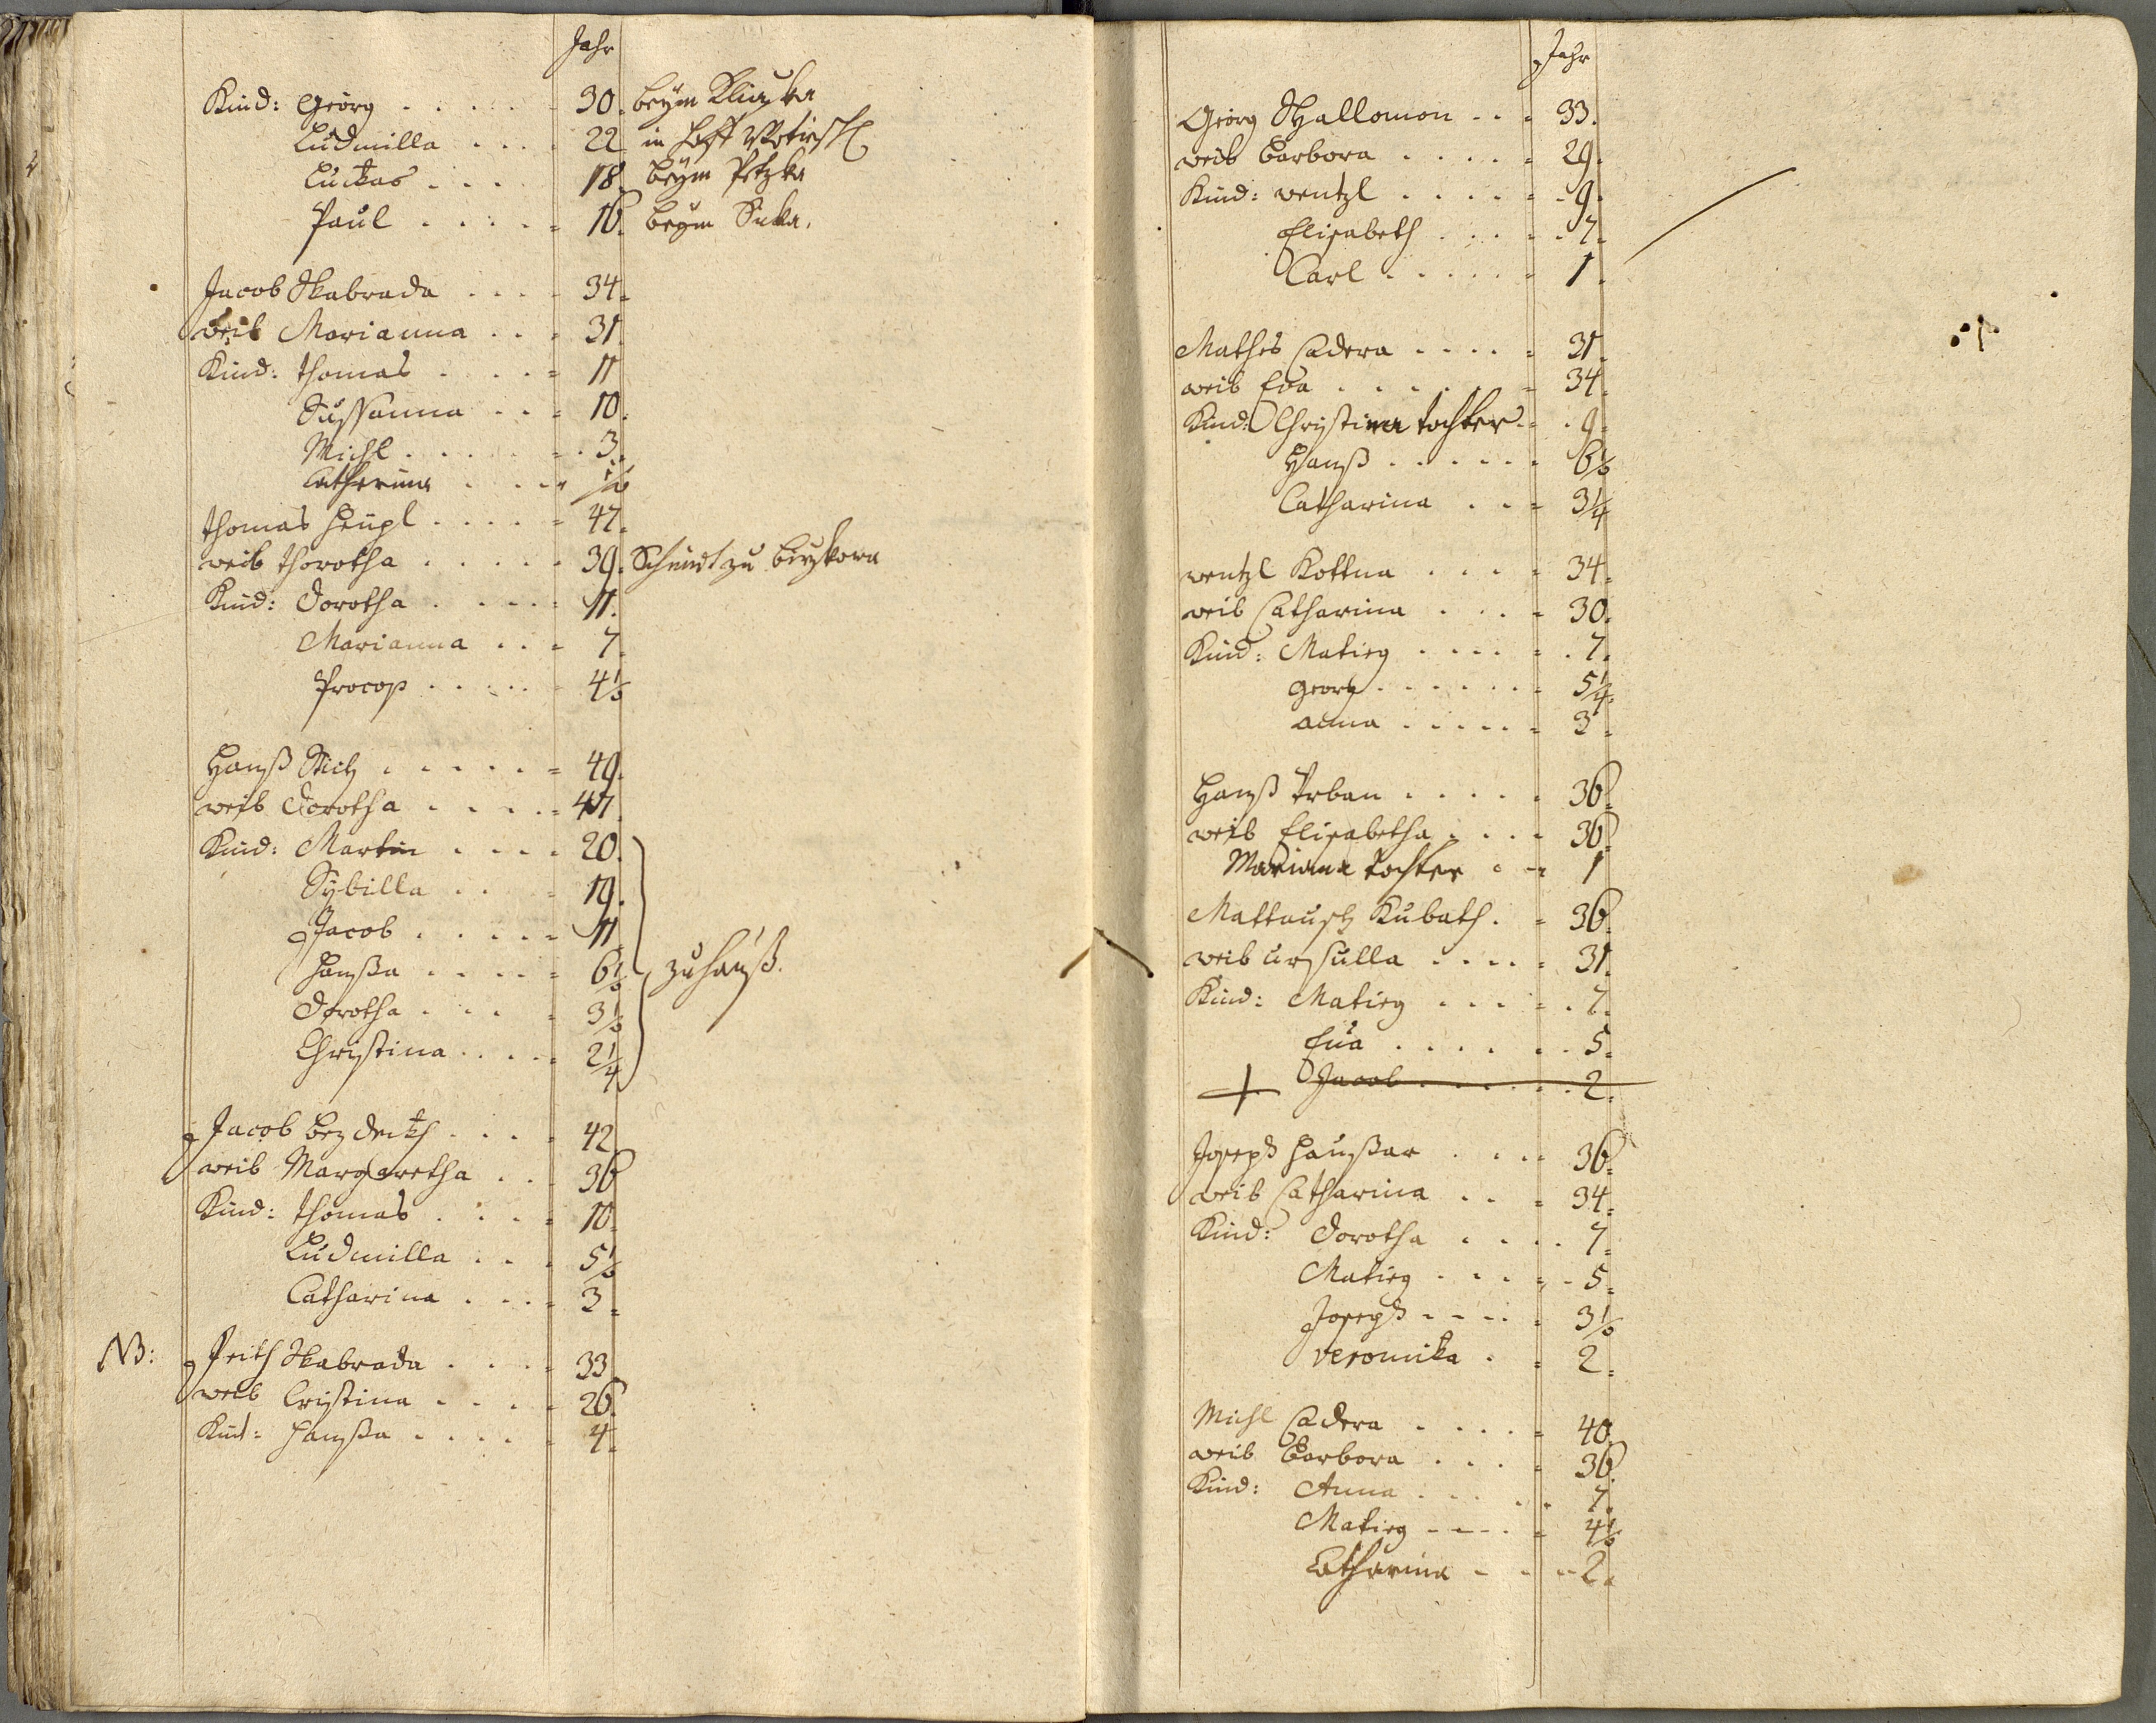 Jahr
Kind: Georg 30. beym
Ludmilla 22 in Hoff
Luckas 18. beym Petzka
Paul 16. beym
Jacob Skabrada 34.
weib Marianna 31.
Kind: Thomas 11
Sussanna 10.
Michl 3.
Catherina 1/2
Thomas Heupl 47.
weib Thorotha 39. Schmidt zu
Kind: Dorotha 11.
Marianna 7.
Procop 4 1/2
Hanß 49.
weib Dorotha 47.
Kind: Martin 20.
Sybilla 19.
Jacob 11.
Hanßa 6 1/2 zu Hauß.
Dorotha 3 1/2
Christina 2 1/4
Jacob Bezdeikh 42.
weib Margaretha 36
Kind: Thomas 10.
Ludmilla 5 1/2
Catharina 3.
NB: Veith Skabrada 33
weib Cristina 26.
Kind: Hanßa 4.
Jahr
Georg Schallomon 33.
weib Barbora 29.
Kind: Wentzl 9.
Elisabeth 7.
Carl 1.
Mathes Cadera 31.
weib Eva 34.
Kind: Christina tochter 9.
Hanß 6 1/2
Catharina 3 1/4
Wentzl Kottna 34.
weib Catharina 30.
Kind: Matieg 7.
Georg 5 1/4
Anna 3.
Hanß Vrban 36.
weib Elisabetha 36.
Mariana tochter 1
Mattausch Kubath 36.
weib Urssulla 31.
Kind: Matieg 7.
Eua 5.
+ Jacob 2.
Joseph Haußar 36.
weib Catharina 34.
Kind: Dorotha 7.
Matieg 5.
Joseph 3 1/2
Veronika 2.
Michl Cadera 40.
weib Barbora 36.
Kind: Anna 7.
Matieg 4 1/2
Catharina 2.